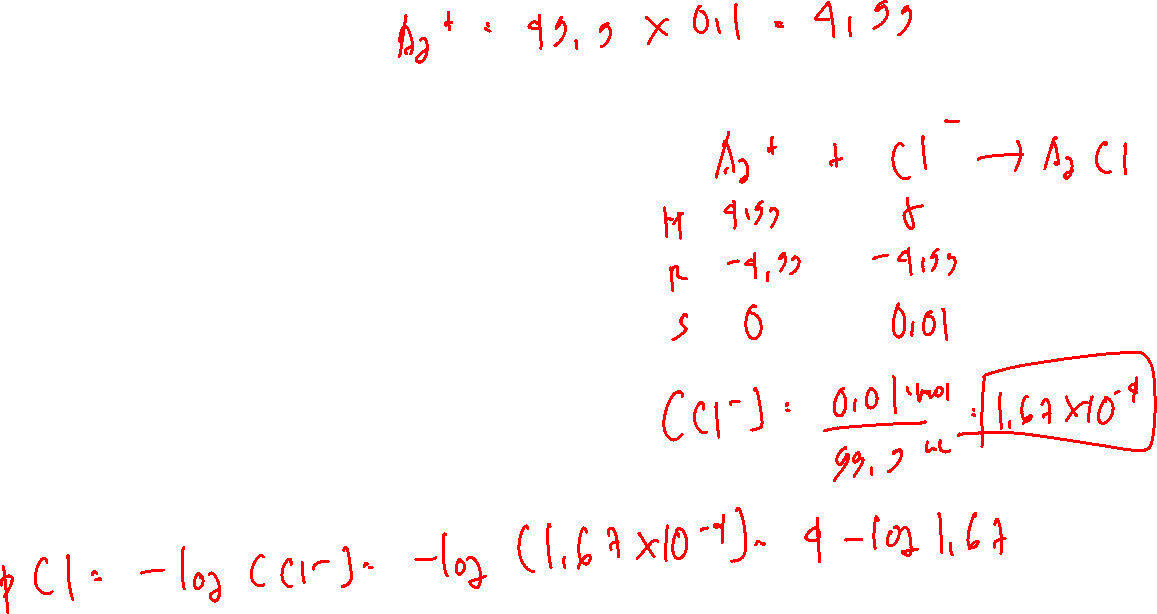 Ag+ = 49,9 x 0,1 = 4,99
Ag+ + Cl- → AgCl
M 4,99 5
R -4,99 -4,99
S 0 0,01
[Cl-] = 0,01 mmol / 99,9 mL = 1,67 x 10-4
pCl = -log [Cl-] = -log (1,67 x 10-4) = 4 - log 1,67